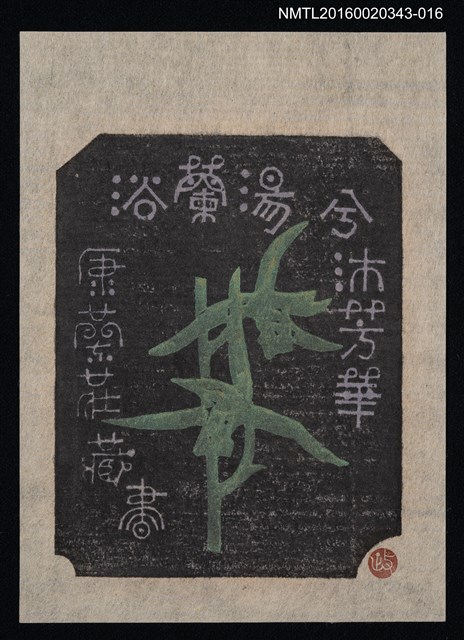 NMTL20160020343-016
浴蘭湯兮沐芳華
康榮莊藏書